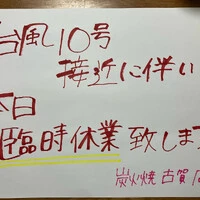 台風10号
接近に伴い
本日
臨時休業 致しま
炭火焼 古賀